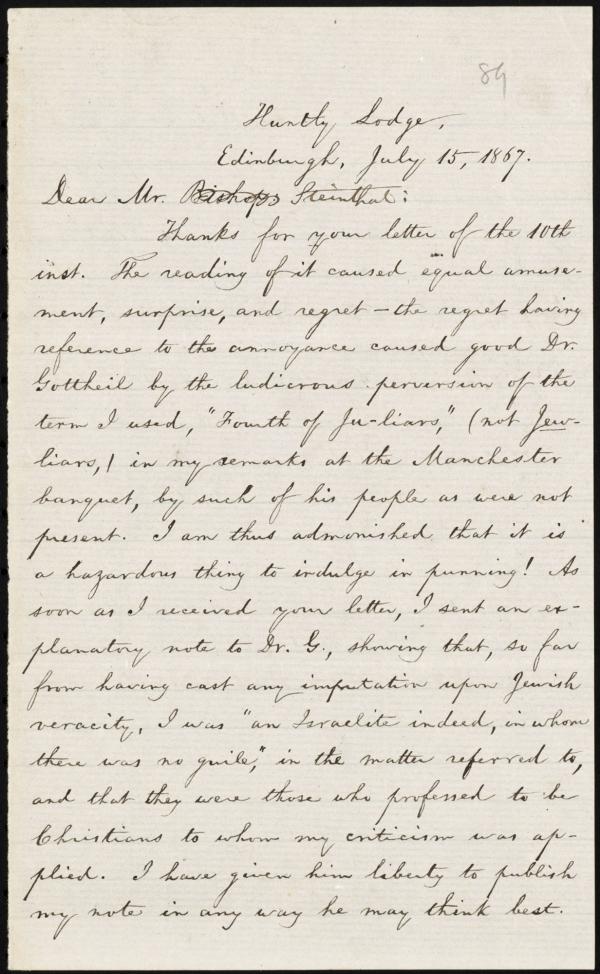 89
Huntly Lodge,
Edinburgh, July 15, 1867.
Dear Mr. Bishops Steinthal:
Thanks for your letter of the 10th
inst. The reading of it caused equal amuse-
ment, surprise, and regret – the regret having
reference to the annoyance caused good Dr.
Gottheil by the ludicrous perversion of the
term I used, "Fourth of Ju-liars," (not Jew-
liars,) in my remarks at the Manchester
banquet, by such of his people as were not
present. I am thus admonished that it is
a hazardous thing to indulge in punning! As
soon as I received your letter, I sent an ex-
planatory note to Dr. G., showing that, so far
from having cast any imputation upon Jewish
veracity, I was "an Israelite indeed, in whom
there was no guile," in the matter referred to,
and that they were those who professed to be
Christians to whom my criticism was ap-
plied. I have given him liberty to publish
my note in any way he may think best.